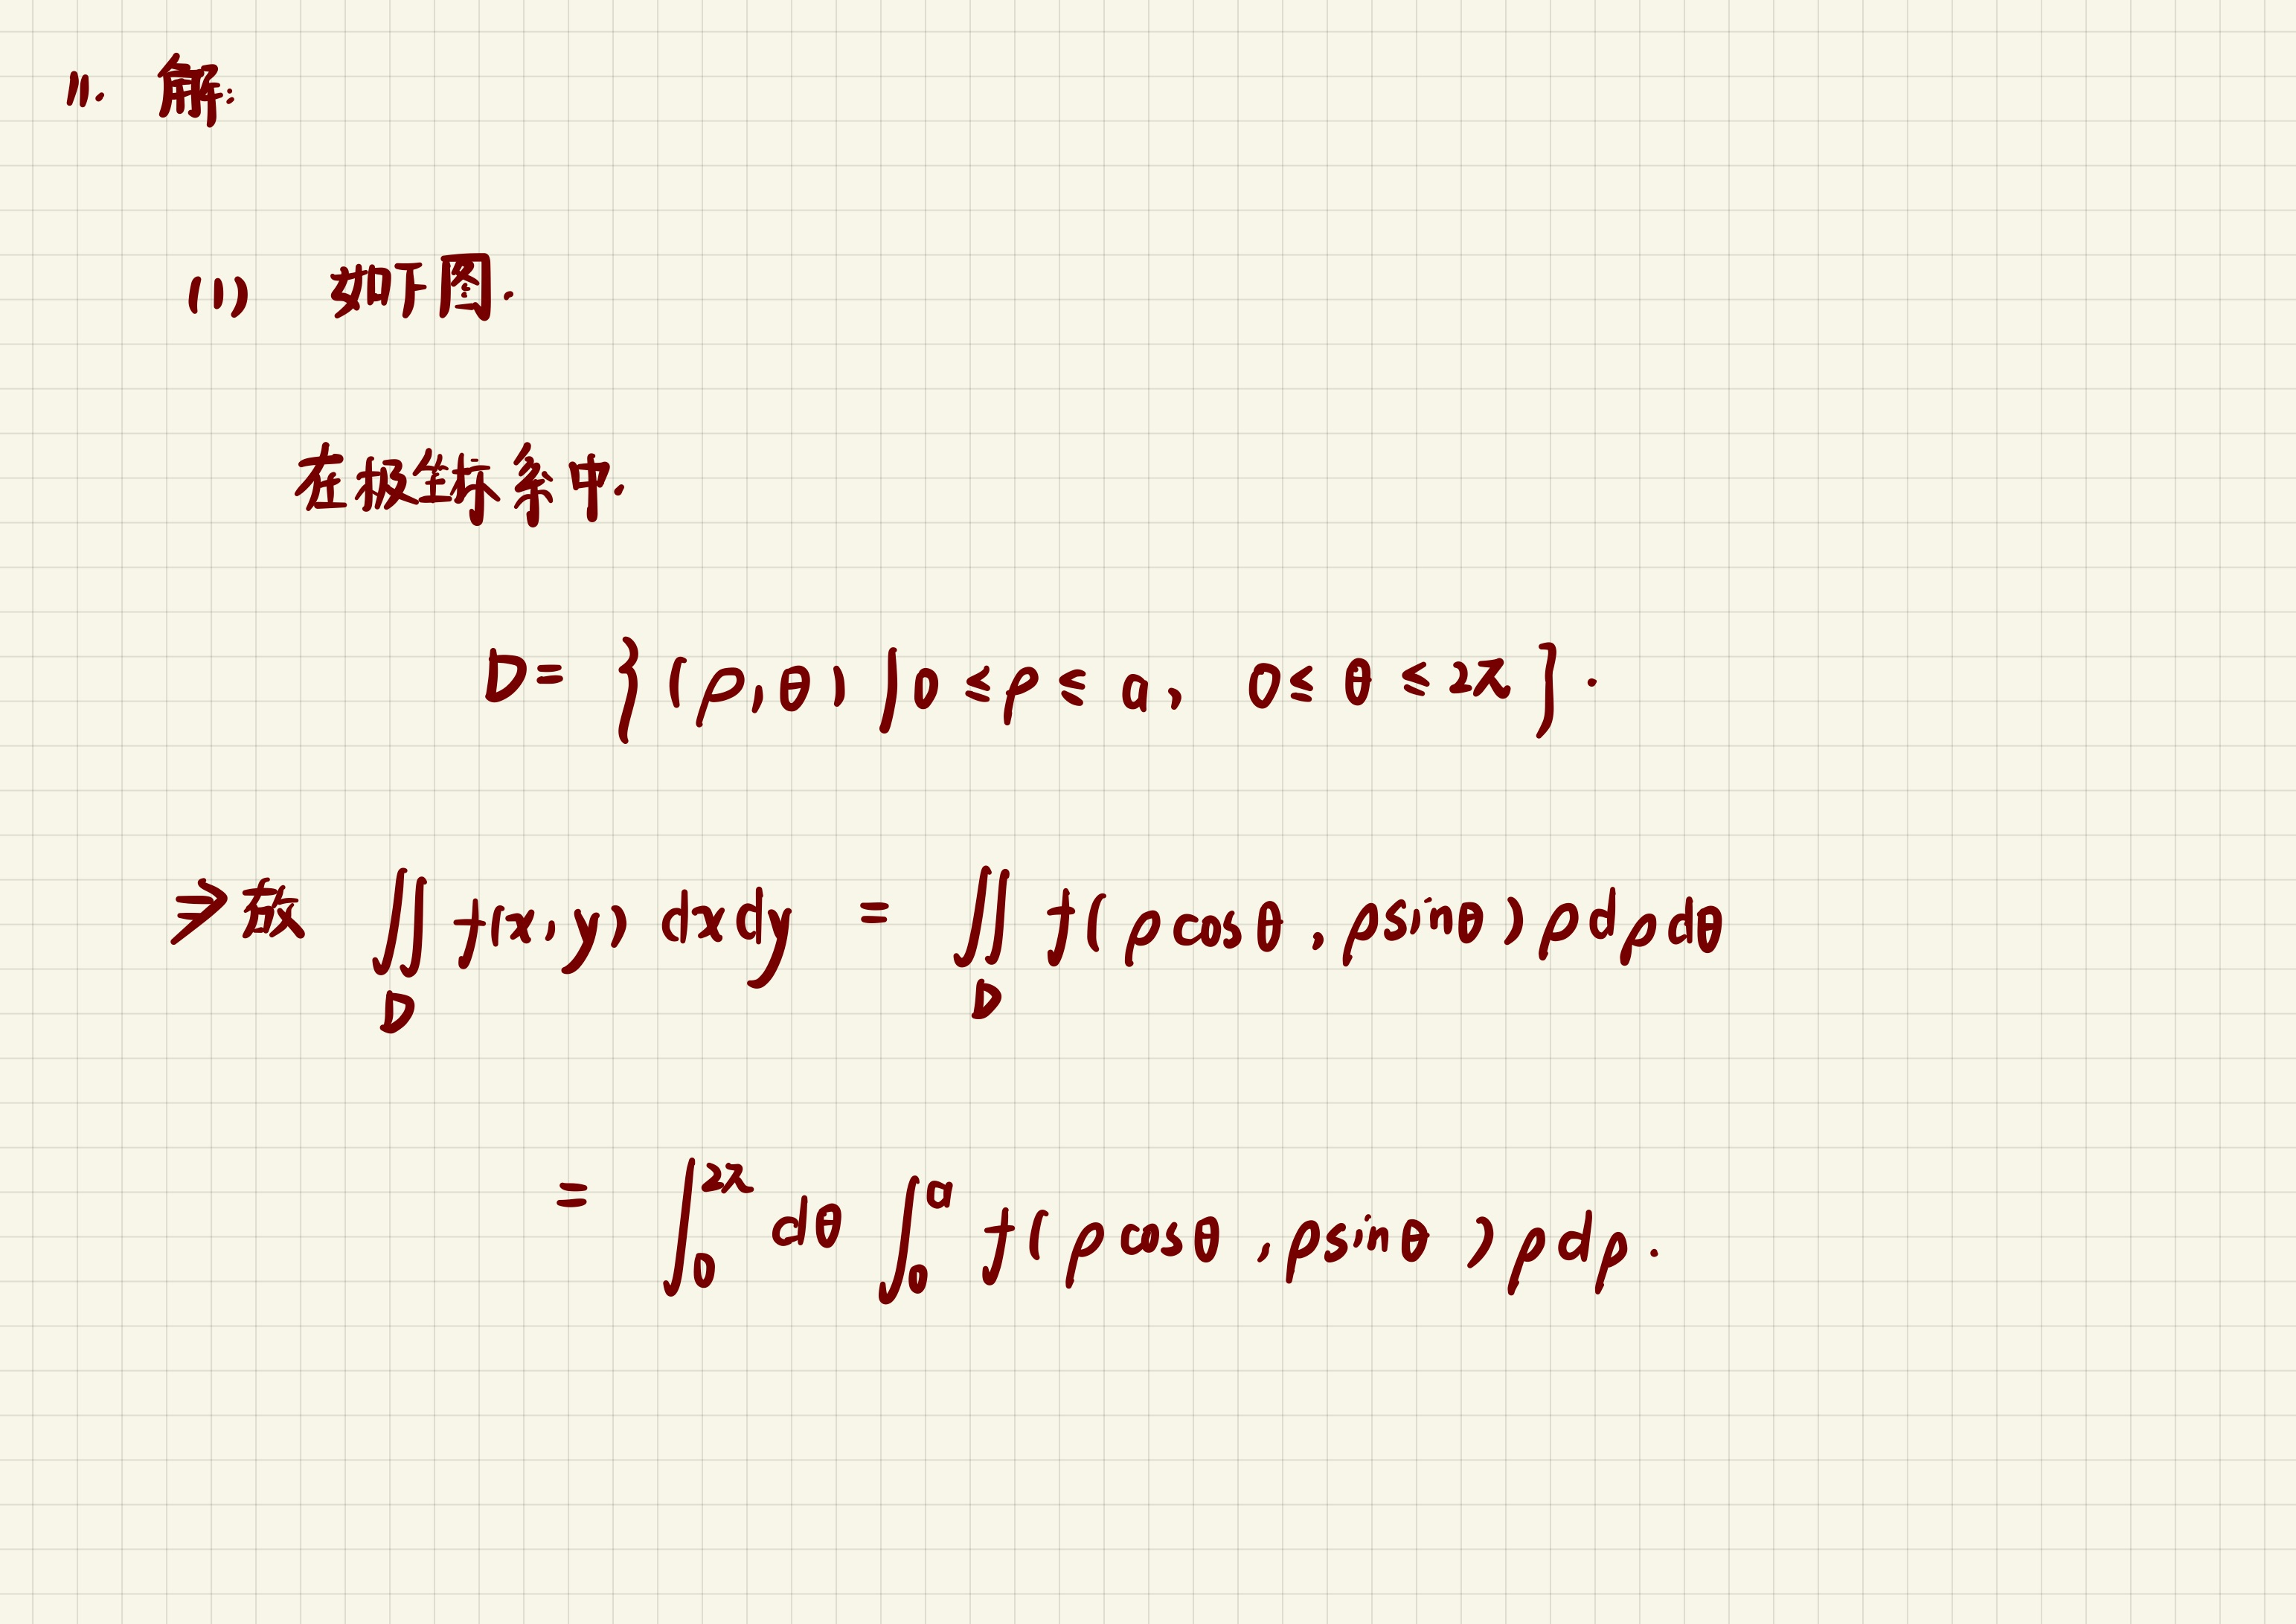 11. 解:
(1) 如下图.
在极坐标系中.
D = { (ρ, θ) | 0 ≤ ρ ≤ a, 0 ≤ θ ≤ 2π }.
⇒ 故 ∬_D f(x, y) dxdy = ∬_D f(ρcosθ, ρsinθ) ρdρdθ
= ∫_0^{2π} dθ ∫_0^a f(ρcosθ, ρsinθ) ρdρ.